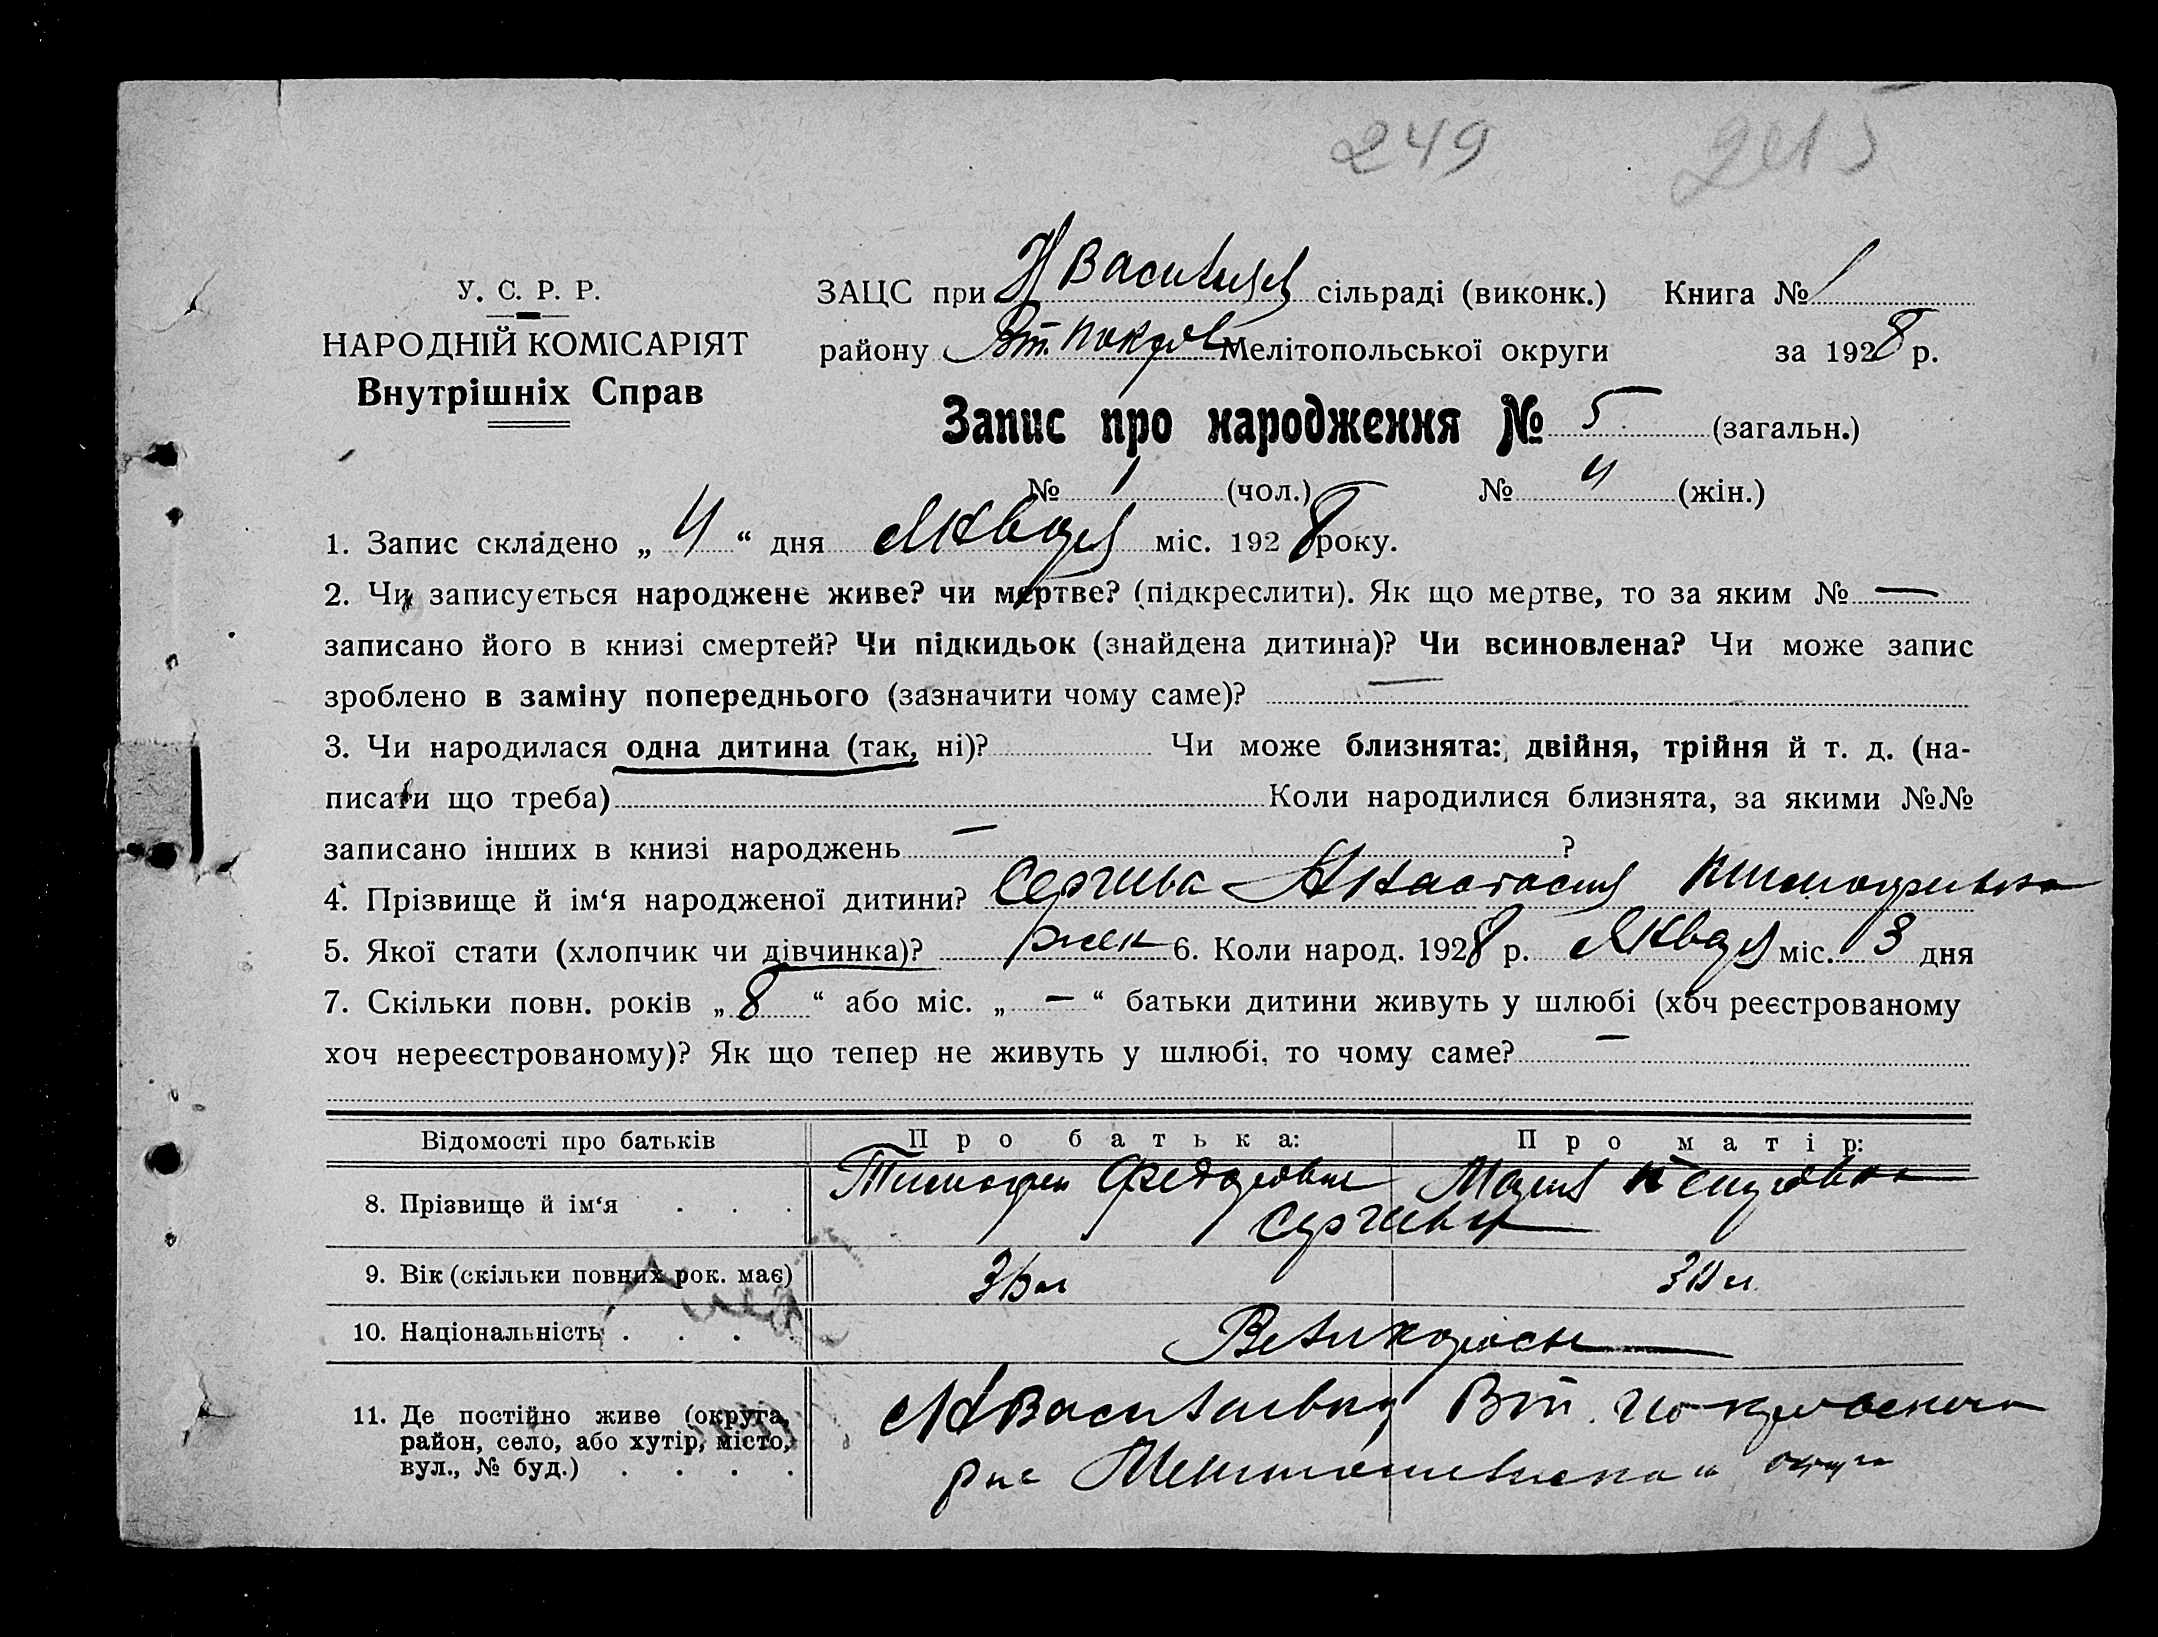 249
У. С. Р. Р.
НАРОДНІЙ КОМІСАРІЯТ
Внутрішніх Справ
ЗАЦС при Н Васильев сільраді (виконк.) Книга № 1
району Вт. Покров Мелітопольської округи за 1928 р.
Запис про народження № 5 (загальн.)
№ 1 (чол.) № 4 (жін.)
1. Запис складено „ 4 “ дня Января міс. 1928 року.
2. Чи записується народжене живе? чи мертве? (підкреслити). Як що мертве, то за яким № —
записано його в книзі смертей? Чи підкидьок (знайдена дитина)? Чи всиновлена? Чи може запис
зроблено в заміну попереднього (зазначити чому саме)? —
3. Чи народилася одна дитина (так, ні)? Чи може близнята: двійня, трійня й т. д. (на-
писати що треба) Коли народилися близнята, за якими №№
записано інших в книзі народжень — ?
4. Прізвище й ім‘я народженої дитини? Сергиева Анастасия Тимофеевна
5. Якої стати (хлопчик чи дівчинка)? жен 6. Коли народ. 1928 р. Января міс. 3 дня
7. Скільки повн. років „ 8 “ або міс. „ — “ батьки дитини живуть у шлюбі (хоч реєстрованому
хоч нереєстрованому)? Як що тепер не живуть у шлюбі, то чому саме? —
Відомості про батьків Про батька: Про матір:
8. Прізвище й ім‘я . . . Тимофей Федорович Мария
Сергиевы
9. Вік (скільки повних рок. має)
10. Національність . . . . Великороссы
11. Де постійно живе (округа, Н Васильевка Вт. Покровского
район, село, або хутір, місто, р-на Мелитопольского округа
вул., № буд.) . . . .